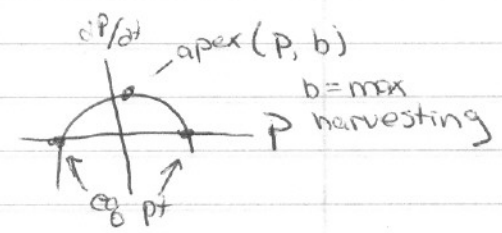 dP/dt
apex (P, b)
b = max
P harvesting
eq pt